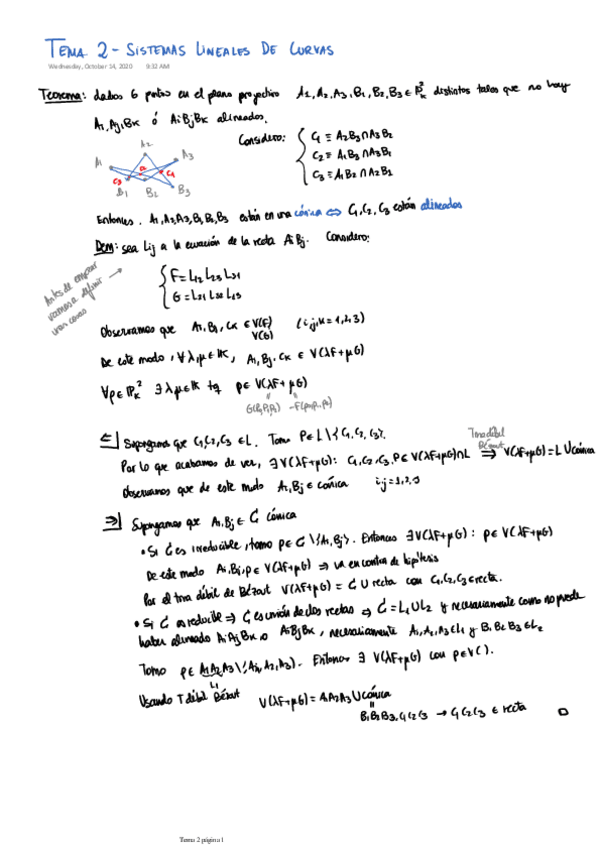 TEMA 2 - SISTEMAS LINEALES DE CURVAS
Wednesday, October 14, 2020 9:32 AM
Teorema: dados 6 puntos en el plano proyectivo A1, A2, A3, B1, B2, B3 ∈ P²_K distintos tales que no hay
Ai, Aj, Bk ó Ai Bj Bk alineados.
Considero: { C1 ≡ A2B3 ∩ A3B2
C2 ≡ A1B3 ∩ A3B1
C3 ≡ A1B2 ∩ A2B1
A1 A2 A3
C3 C1
B1 B2 B3
Entonces. A1, A2, A3, B1, B2, B3 están en una cónica ⇔ C1, C2, C3 están alineados
Dem: sea Lij a la ecuación de la recta AiBj. Considero:
Antes de empezar
vamos a definir
unas curvas
{ F = L12 L23 L31
G = L21 L32 L13
Observamos que Ai, Bj, Ck ∈ V(F) (i,j,k = 1,2,3)
V(G)
De este modo, ∀λ,μ ∈ K, Ai, Bj, Ck ∈ V(λF+μG)
∀p ∈ P²_K ∃ λ,μ ∈ K tq p ∈ V(λF+μG)
⇐] Supongamos que C1, C2, C3 ∈ L. Tomo P ∈ L \ {C1, C2, C3}.
Por lo que acabamos de ver, ∃ V(λF+μG): C1, C2, C3, P ∈ V(λF+μG) ∩ L ⟹ V(λF+μG) = L ∪ cónica
Tma débil
Bézout
Observamos que de este modo Ai, Bj ∈ cónica i,j = 1,2,3
⇒] Supongamos que Ai, Bj ∈ C cónica
• Si C es irreducible, tomo p ∈ C \ {Ai, Bj}. Entonces ∃ V(λF+μG): p ∈ V(λF+μG)
De este modo Ai, Bj, p ∈ V(λF+μG) ⇒ va en contra de hipótesis
Por el tma débil de Bézout V(λF+μG) = C ∪ recta con C1, C2, C3 ∈ recta.
• Si C es reducible ⇒ C es unión de dos rectas ⇒ C = L1 ∪ L2 y necesariamente como no puede
haber alineado Ai Aj Bk o Ai Bj Bk, necesariamente A1, A2, A3 ∈ L1 y B1 B2 B3 ∈ L2
Tomo p ∈ A1A2A3 \ {A1, A2, A3}. Entonces ∃ V(λF+μG) con p ∈ V( ).
L1
Usando T débil Bézout V(λF+μG) = A1A2A3 ∪ cónica
B1B2B3, C1C2C3 → C1C2C3 ∈ recta □
Tema 2 página 1